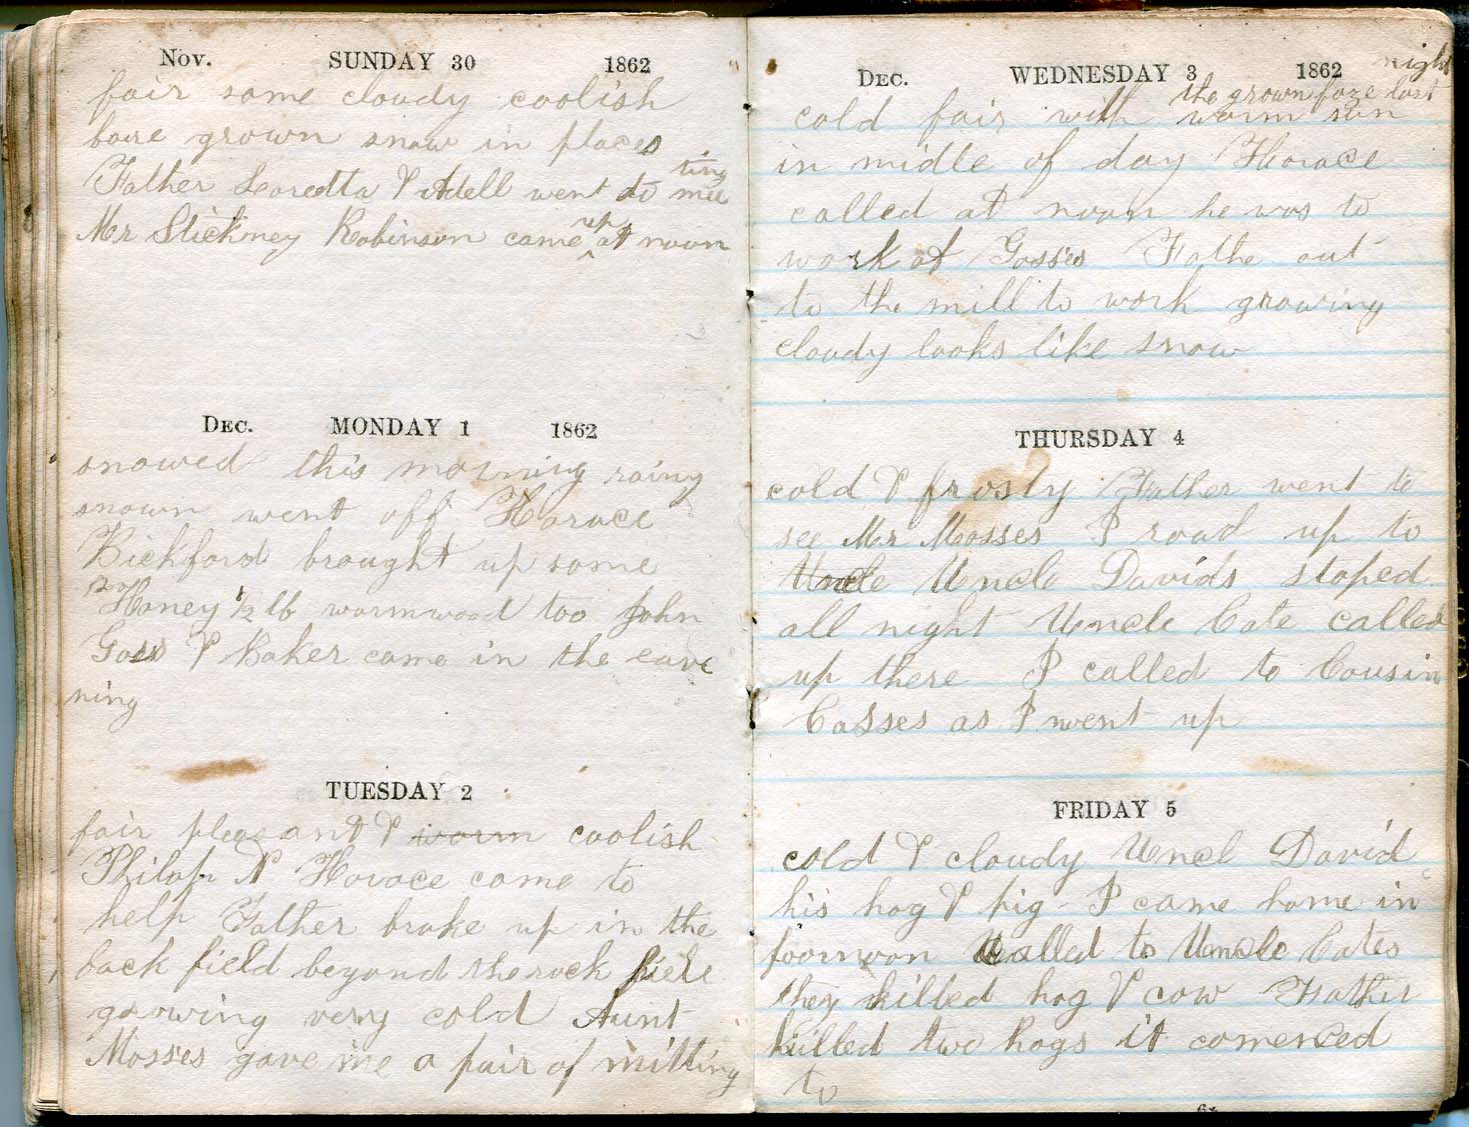 Nov. SUNDAY 30 1862
fair some cloudy coolish
bare grown snow in places
Father Loretta & Adell went to mee
ting
Mr Stickney Robinson came up at noon
Dec. MONDAY 1 1862
snowed this morning rainy
snown went off Horace
Bickford brought up some
Honey ½ lb wormwood too John
Goss & Baker came in the eave
ning
TUESDAY 2
fair pleasant & worm coolish
Philap N Horace came to
help Father brake up in the
back field beyond the rock
growing very cold Aunt
Mosses gave me a pair of mitting
Dec. WEDNESDAY 3 1862
night
the grown foze last
cold fair with worm sun
in midle of day Horace
called at noon he was to
work at Gosses Fathe out
to the mill to work growing
cloudy looks like snow
THURSDAY 4
cold & frosty Father went to
see Mr Mosses I road up to
Uncle Uncle Davids stoped
all night Uncle Cate called
up there I called to Cousin
Casses as I went up
FRIDAY 5
cold & cloudy Uncl David
his hog & pig I came home in
foornoon called to Uncle Cates
they killed hog & cow Father
killed two hogs it comenced
to